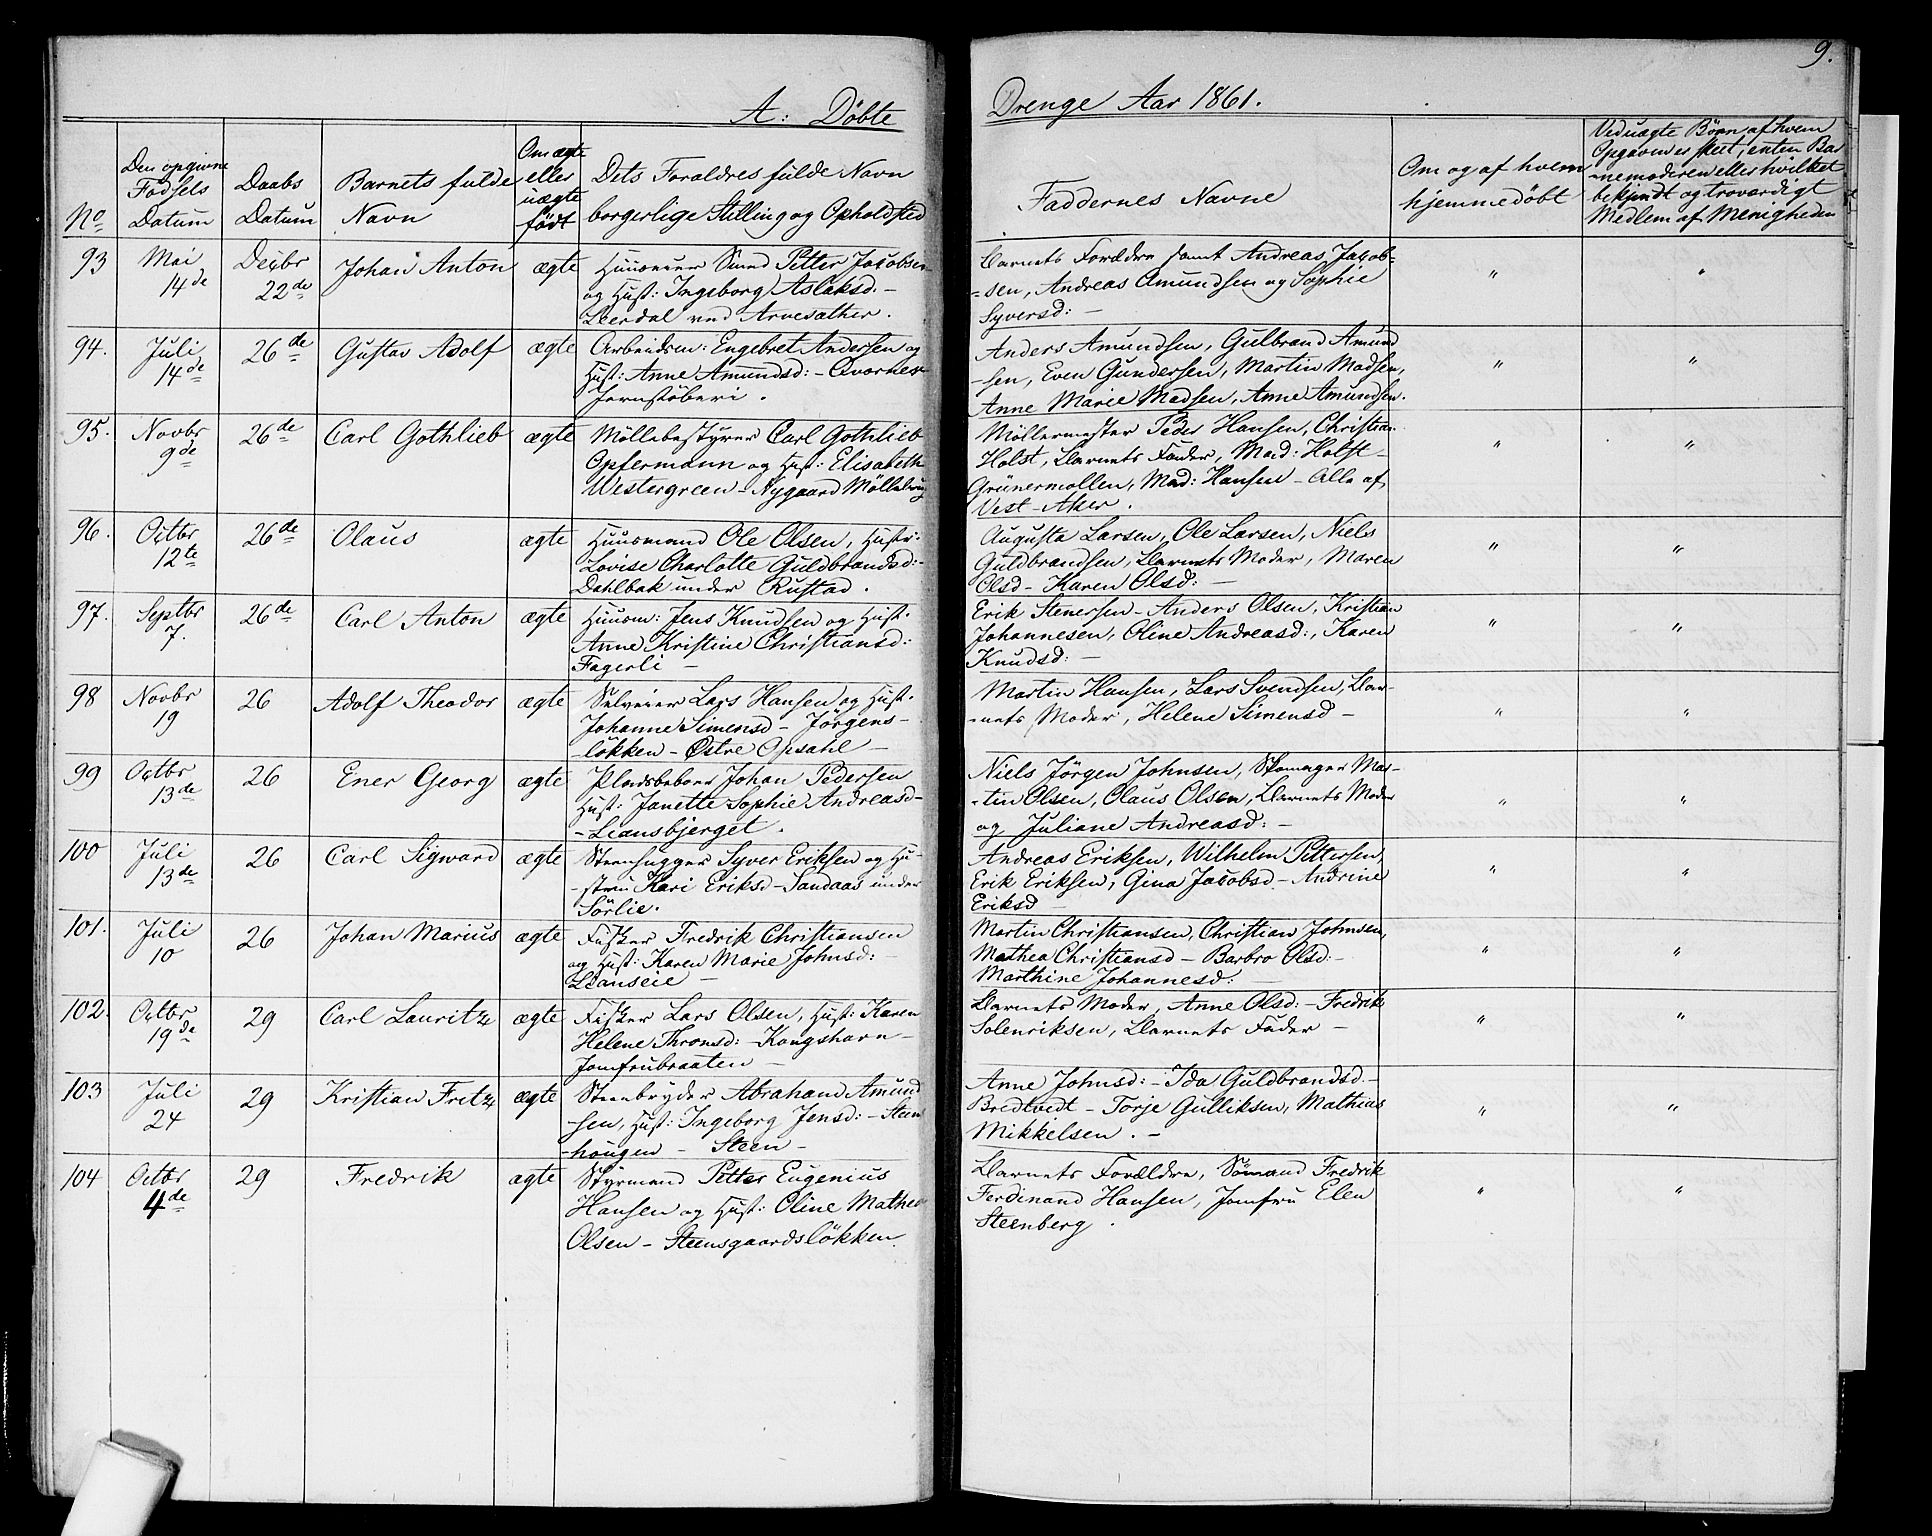 A: Döbte
Drenge Aar 1861.
9.
No
Den opgivne
Födsels
Datum
Daabs
Datum
Barnets fulde
Navn
Om ægte
eller
uægte
födt
Dets Foraldres fulde Navn
borgerlige Stilling og Opholdsted
Faddernes Navne
Om og af hvem
hjemmedöbt
Ved uægte Börn af hvem
Opgaven er skeet, enten Bar
-nemoderen eller hvilket
bekjendt og troværdigt
Medlem af Menigheden
93
Mai
14de
Decbr
22de
Johan Anton
ægte
Huuseier Smed Petter Jacobsen
og Hust: Ingeborg Aslaksd. -
ved Arvesather.
Barnets Forældre samt Andreas Jacob-
-sen, Andreas Amundsen og Sophie
Syversd: -
" "
94.
Juli
14de
26de
Gustav Adolf
ægte
Arbeidsm: Engebret Andersen og
Hust: Anne Amundsd: - Qværner
Jernstöberi.
Anders Amundsen, Gulbrand Amund
-sen, Even Gundersen, Martin Madsen,
Anne Marie Madsen, Anne Amundsen.
" "
95.
Novbr
9de
26de
Carl Gothlieb
ægte
Möllebestyrer Carl Gothlieb
Opfermann og Hust: Elisabeth
Westergreen - Nygaard Möllebrug
Möllermester Peder Hansen, Christian
Holst, Barnets Fader, Mad: Holst -
Grünermöllen, Mad: Hansen - Alle af
Vest-Aker.
" "
96.
Octbr
12te
26de
Olaus
ægte
Huusmand Ole Olsen, Hustr:
Lovise Charlotte Guldbrandsd: -
Dahlbak under Rustad.
Augusta Larsen, Ole Larsen, Niels
Guldbrandsen, Barnets Moder, Maren
Olsd - Karen Olsd: -
" "
97.
Septbr
7.
26de
Carl Anton
ægte
Huusm: Jens Knudsen og Hust:
Anne Kristine Christiansd:
Fagerli -
Erik Stenersen - Anders Olsen, Kristian
Johannesen, Oline Andreasd:, Karen
Knudsd: -
" "
98
Novbr
19
26
Adolf Theodor
ægte
Selveier Lars Hansen og Hust:
Johanne Simensd - Jörgens-
lökken - Östre Opsahl -
Martin Hansen, Lars Svendsen, Bar-
-nets Moder, Helene Simensd -
" "
99
Octbr
13de
26
Ener Georg
ægte
Pladsbeboer Johan Pedersen
Hust: Janette Sophie Andreasd -
- Liansbjerget.
Niels Jörgen Johnsen, Skomager Mar-
-tin Olsen, Olaus Olsen, Barnets Moder
og Juliane Andreasd: -
" "
100
Juli
13de
26
Carl Sigward
ægte
Steenhugger Syver Eriksen og Hu-
-stru Kari Eriksd - Sandaas under
Sörlie.
Andreas Eriksen, Wilhelm Pettersen,
Erik Eriksen, Gina Jacobsd - Andrine
Eriksd -
" "
101.
Juli
10
26
Johan Marius
ægte
Fisker Fredrik Christiansen
og Hust: Karen Marie Johnsd: -
Martin Christiansen, Christian Johnsen,
Mathea Christiansd - Barbro Olsd: -
Marthine Johannesd: -
" "
102.
Octbr
19de
29
Carl Lauritz
ægte
Fisker Lars Olsen, Hust: Karen
Helene Thronsd: - Kongshavn -
Jomfrubraaten -
Barnets Moder, Anne Olsd: - Fredrik
Solenriksen, Barnets Fader -
" "
103
Juli
24
29
Kristian Fritz
ægte
Steenbryder Abraham Amund
-sen, Hust: Ingeborg Jensd: - Steen
-hougen - Steen -
Anne Johnsd: - Ida Guldbrandsd -
Bredtvedt - Torje Gulliksen, Mathias
Mikkelsen. -
" "
104
Octbr
4de
29
Fredrik
ægte
Styrmand Petter Eugenius
Hansen og Hust: Oline Mathea
Olsen - Steensgaardslökken
Barnets Forældre, Sömand Fredrik
Ferdinand Hansen, Jomfru Elen
Steenberg.
" "